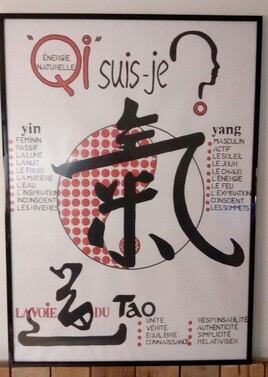 "Qi" suis-je
ÉNERGIE
NATURELLE
yin
FÉMININ
PASSIF
LA LUNE
LA NUIT
LE FROID
LA MATIÈRE
L'EAU
L'INSPIRATION
INCONSCIENT
LES RIVIÈRES
yang
MASCULIN
ACTIF
LE SOLEIL
LE JOUR
LE CHAUD
L'ÉNERGIE
LE FEU
L'EXPIRATION
CONSCIENT
LES SOMMETS
氣
LA VOIE DU Tao
道
UNITÉ
VÉRITÉ
ÉQUILIBRE
CONNAISSANCE
RESPONSABILITÉ
AUTHENTICITÉ
SIMPLICITÉ
RELATIVISER